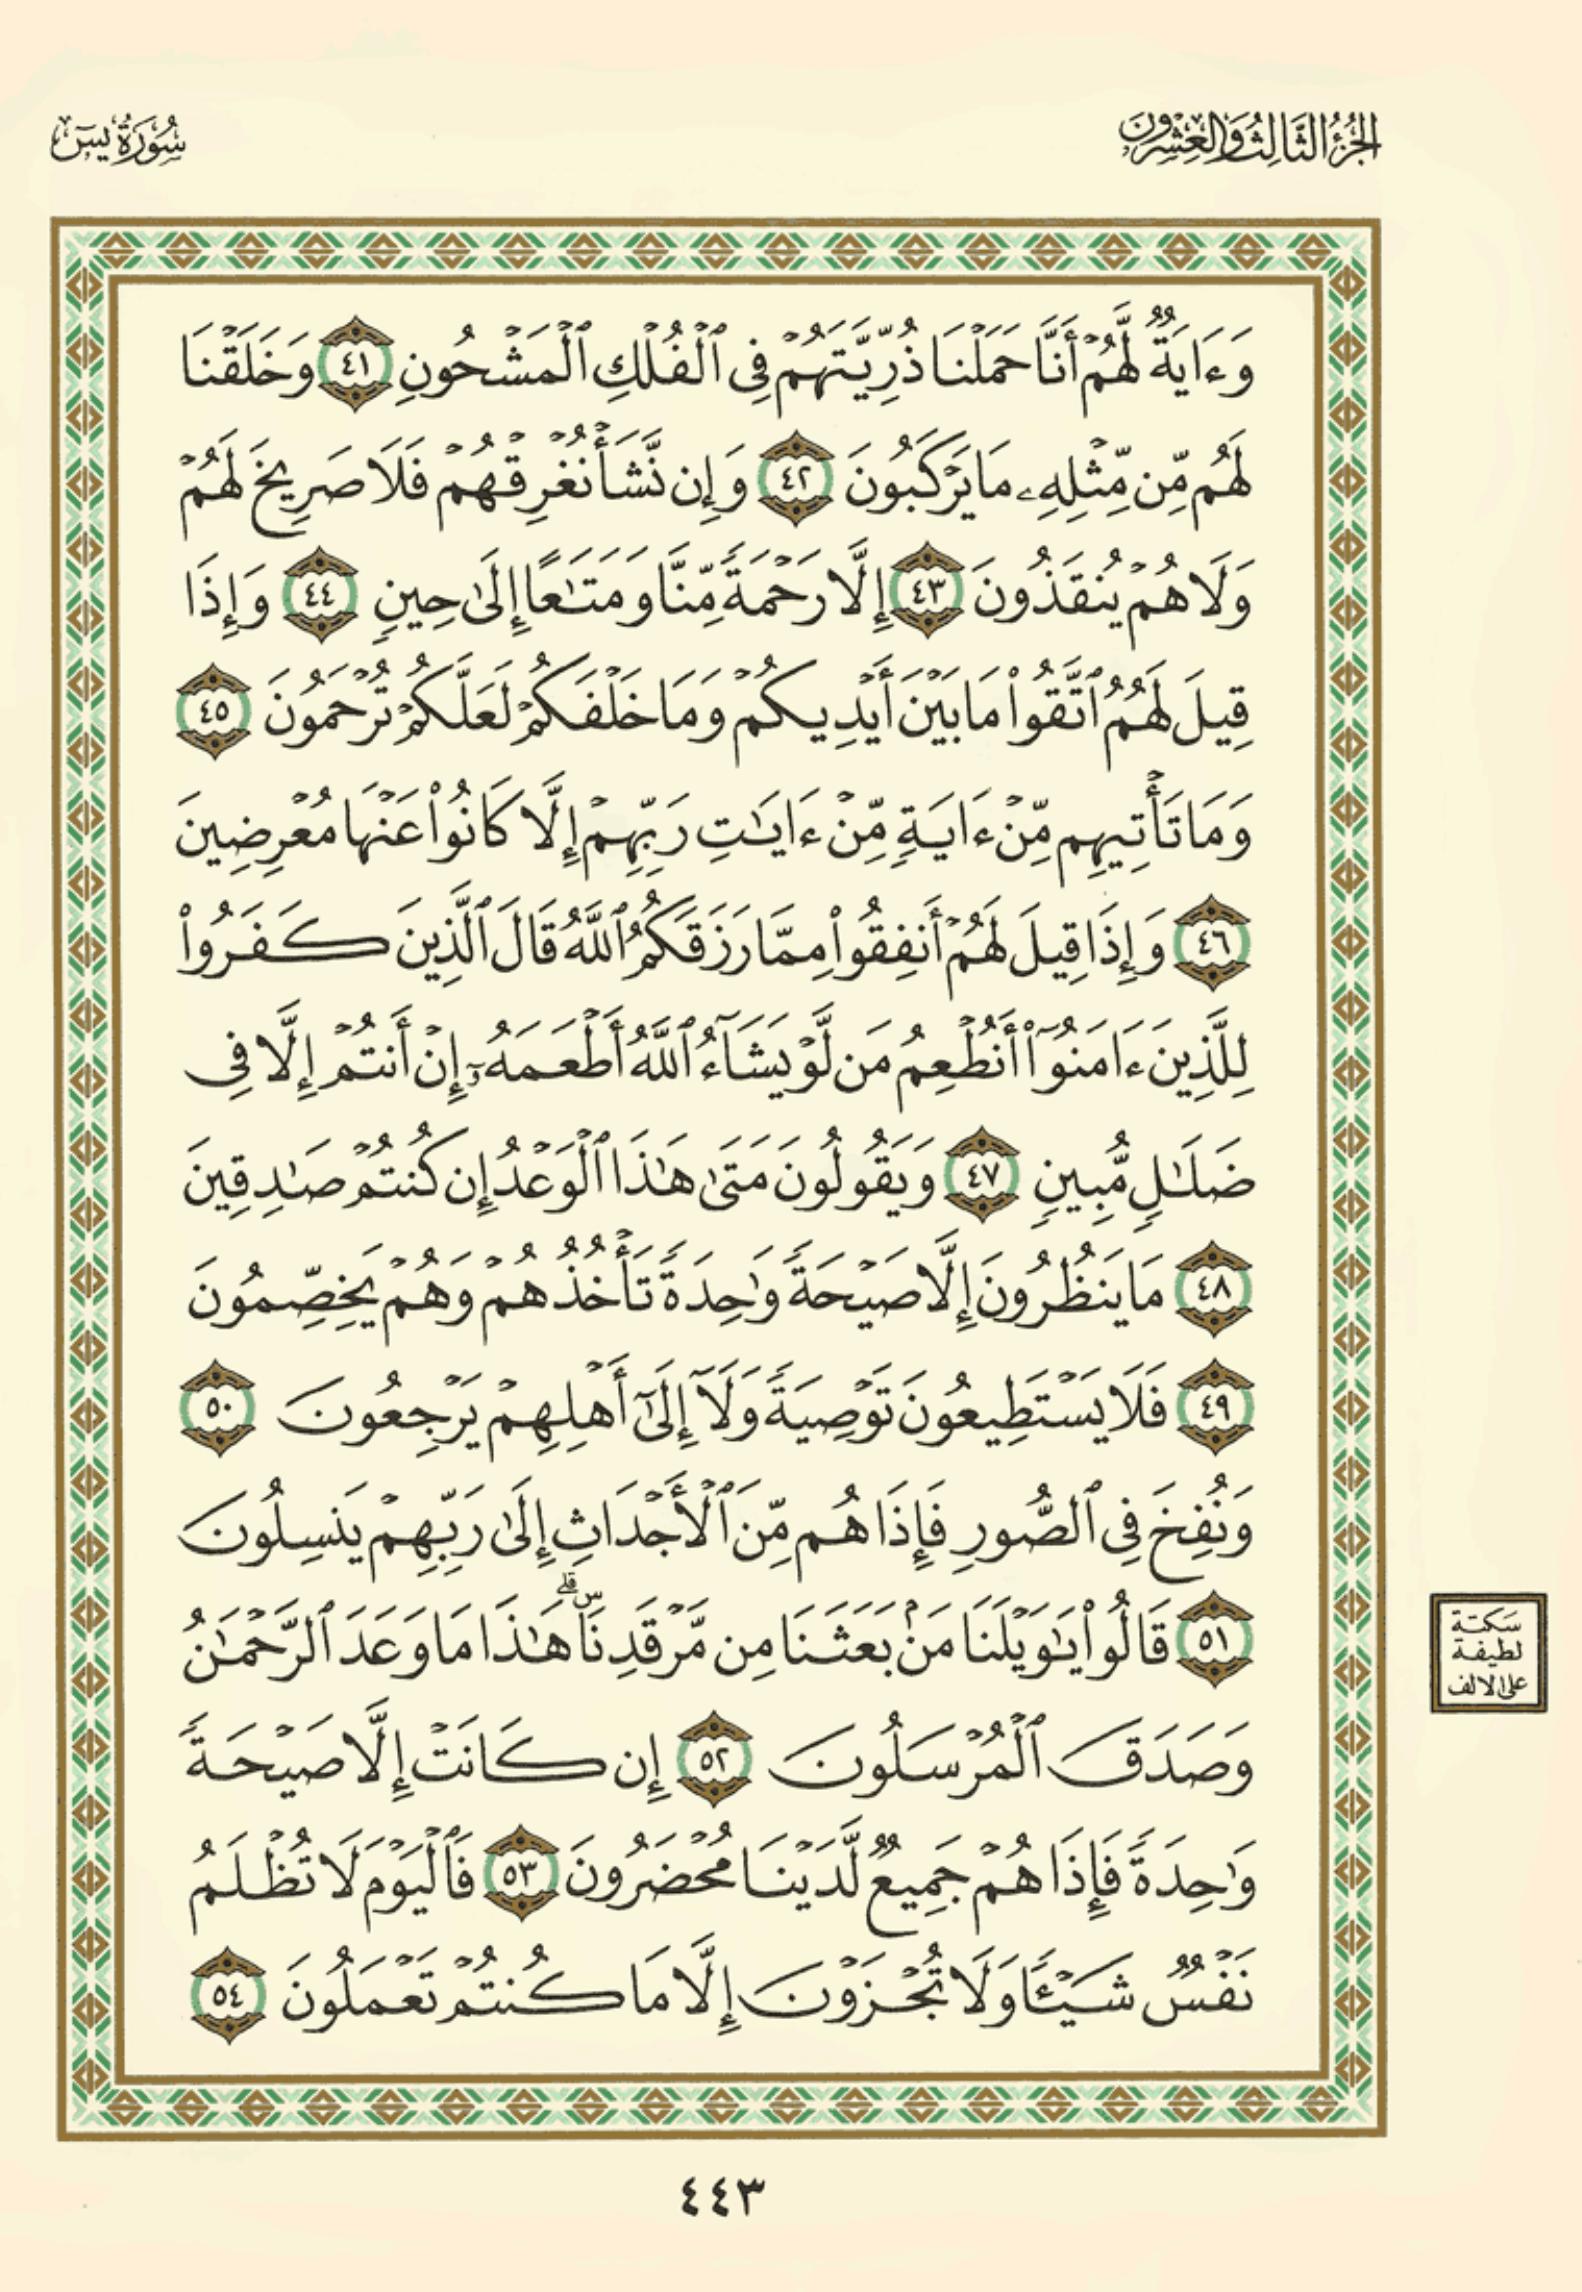 الجزء الثالث والعشرون
سورة يس
وَءَايَةٌ لَّهُمْ أَنَّا حَمَلْنَا ذُرِّيَّتَهُمْ فِى ٱلْفُلْكِ ٱلْمَشْحُونِ ٤١ وَخَلَقْنَا
لَهُم مِّن مِّثْلِهِۦ مَا يَرْكَبُونَ ٤٢ وَإِن نَّشَأْ نُغْرِقْهُمْ فَلَا صَرِيخَ لَهُمْ
وَلَا هُمْ يُنقَذُونَ ٤٣ إِلَّا رَحْمَةً مِّنَّا وَمَتَٰعًا إِلَىٰ حِينٍ ٤٤ وَإِذَا
قِيلَ لَهُمُ ٱتَّقُوا۟ مَا بَيْنَ أَيْدِيكُمْ وَمَا خَلْفَكُمْ لَعَلَّكُمْ تُرْحَمُونَ ٤٥
وَمَا تَأْتِيهِم مِّنْ ءَايَةٍ مِّنْ ءَايَٰتِ رَبِّهِمْ إِلَّا كَانُوا۟ عَنْهَا مُعْرِضِينَ
٤٦ وَإِذَا قِيلَ لَهُمْ أَنفِقُوا۟ مِمَّا رَزَقَكُمُ ٱللَّهُ قَالَ ٱلَّذِينَ كَفَرُوا۟
لِلَّذِينَ ءَامَنُوٓا۟ أَنُطْعِمُ مَن لَّوْ يَشَآءُ ٱللَّهُ أَطْعَمَهُۥٓ إِنْ أَنتُمْ إِلَّا فِى
ضَلَٰلٍ مُّبِينٍ ٤٧ وَيَقُولُونَ مَتَىٰ هَٰذَا ٱلْوَعْدُ إِن كُنتُمْ صَٰدِقِينَ
٤٨ مَا يَنظُرُونَ إِلَّا صَيْحَةً وَٰحِدَةً تَأْخُذُهُمْ وَهُمْ يَخِصِّمُونَ
٤٩ فَلَا يَسْتَطِيعُونَ تَوْصِيَةً وَلَآ إِلَىٰٓ أَهْلِهِمْ يَرْجِعُونَ ٥٠
وَنُفِخَ فِى ٱلصُّورِ فَإِذَا هُم مِّنَ ٱلْأَجْدَاثِ إِلَىٰ رَبِّهِمْ يَنسِلُونَ
٥١ قَالُوا۟ يَٰوَيْلَنَا مَنۢ بَعَثَنَا مِن مَّرْقَدِنَاۜ ۗ هَٰذَا مَا وَعَدَ ٱلرَّحْمَٰنُ
وَصَدَقَ ٱلْمُرْسَلُونَ ٥٢ إِن كَانَتْ إِلَّا صَيْحَةً
وَٰحِدَةً فَإِذَا هُمْ جَمِيعٌ لَّدَيْنَا مُحْضَرُونَ ٥٣ فَٱلْيَوْمَ لَا تُظْلَمُ
نَفْسٌ شَيْـًٔا وَلَا تُجْزَوْنَ إِلَّا مَا كُنتُمْ تَعْمَلُونَ ٥٤
سكتة
لطيفة
على الالف
٤٤٣